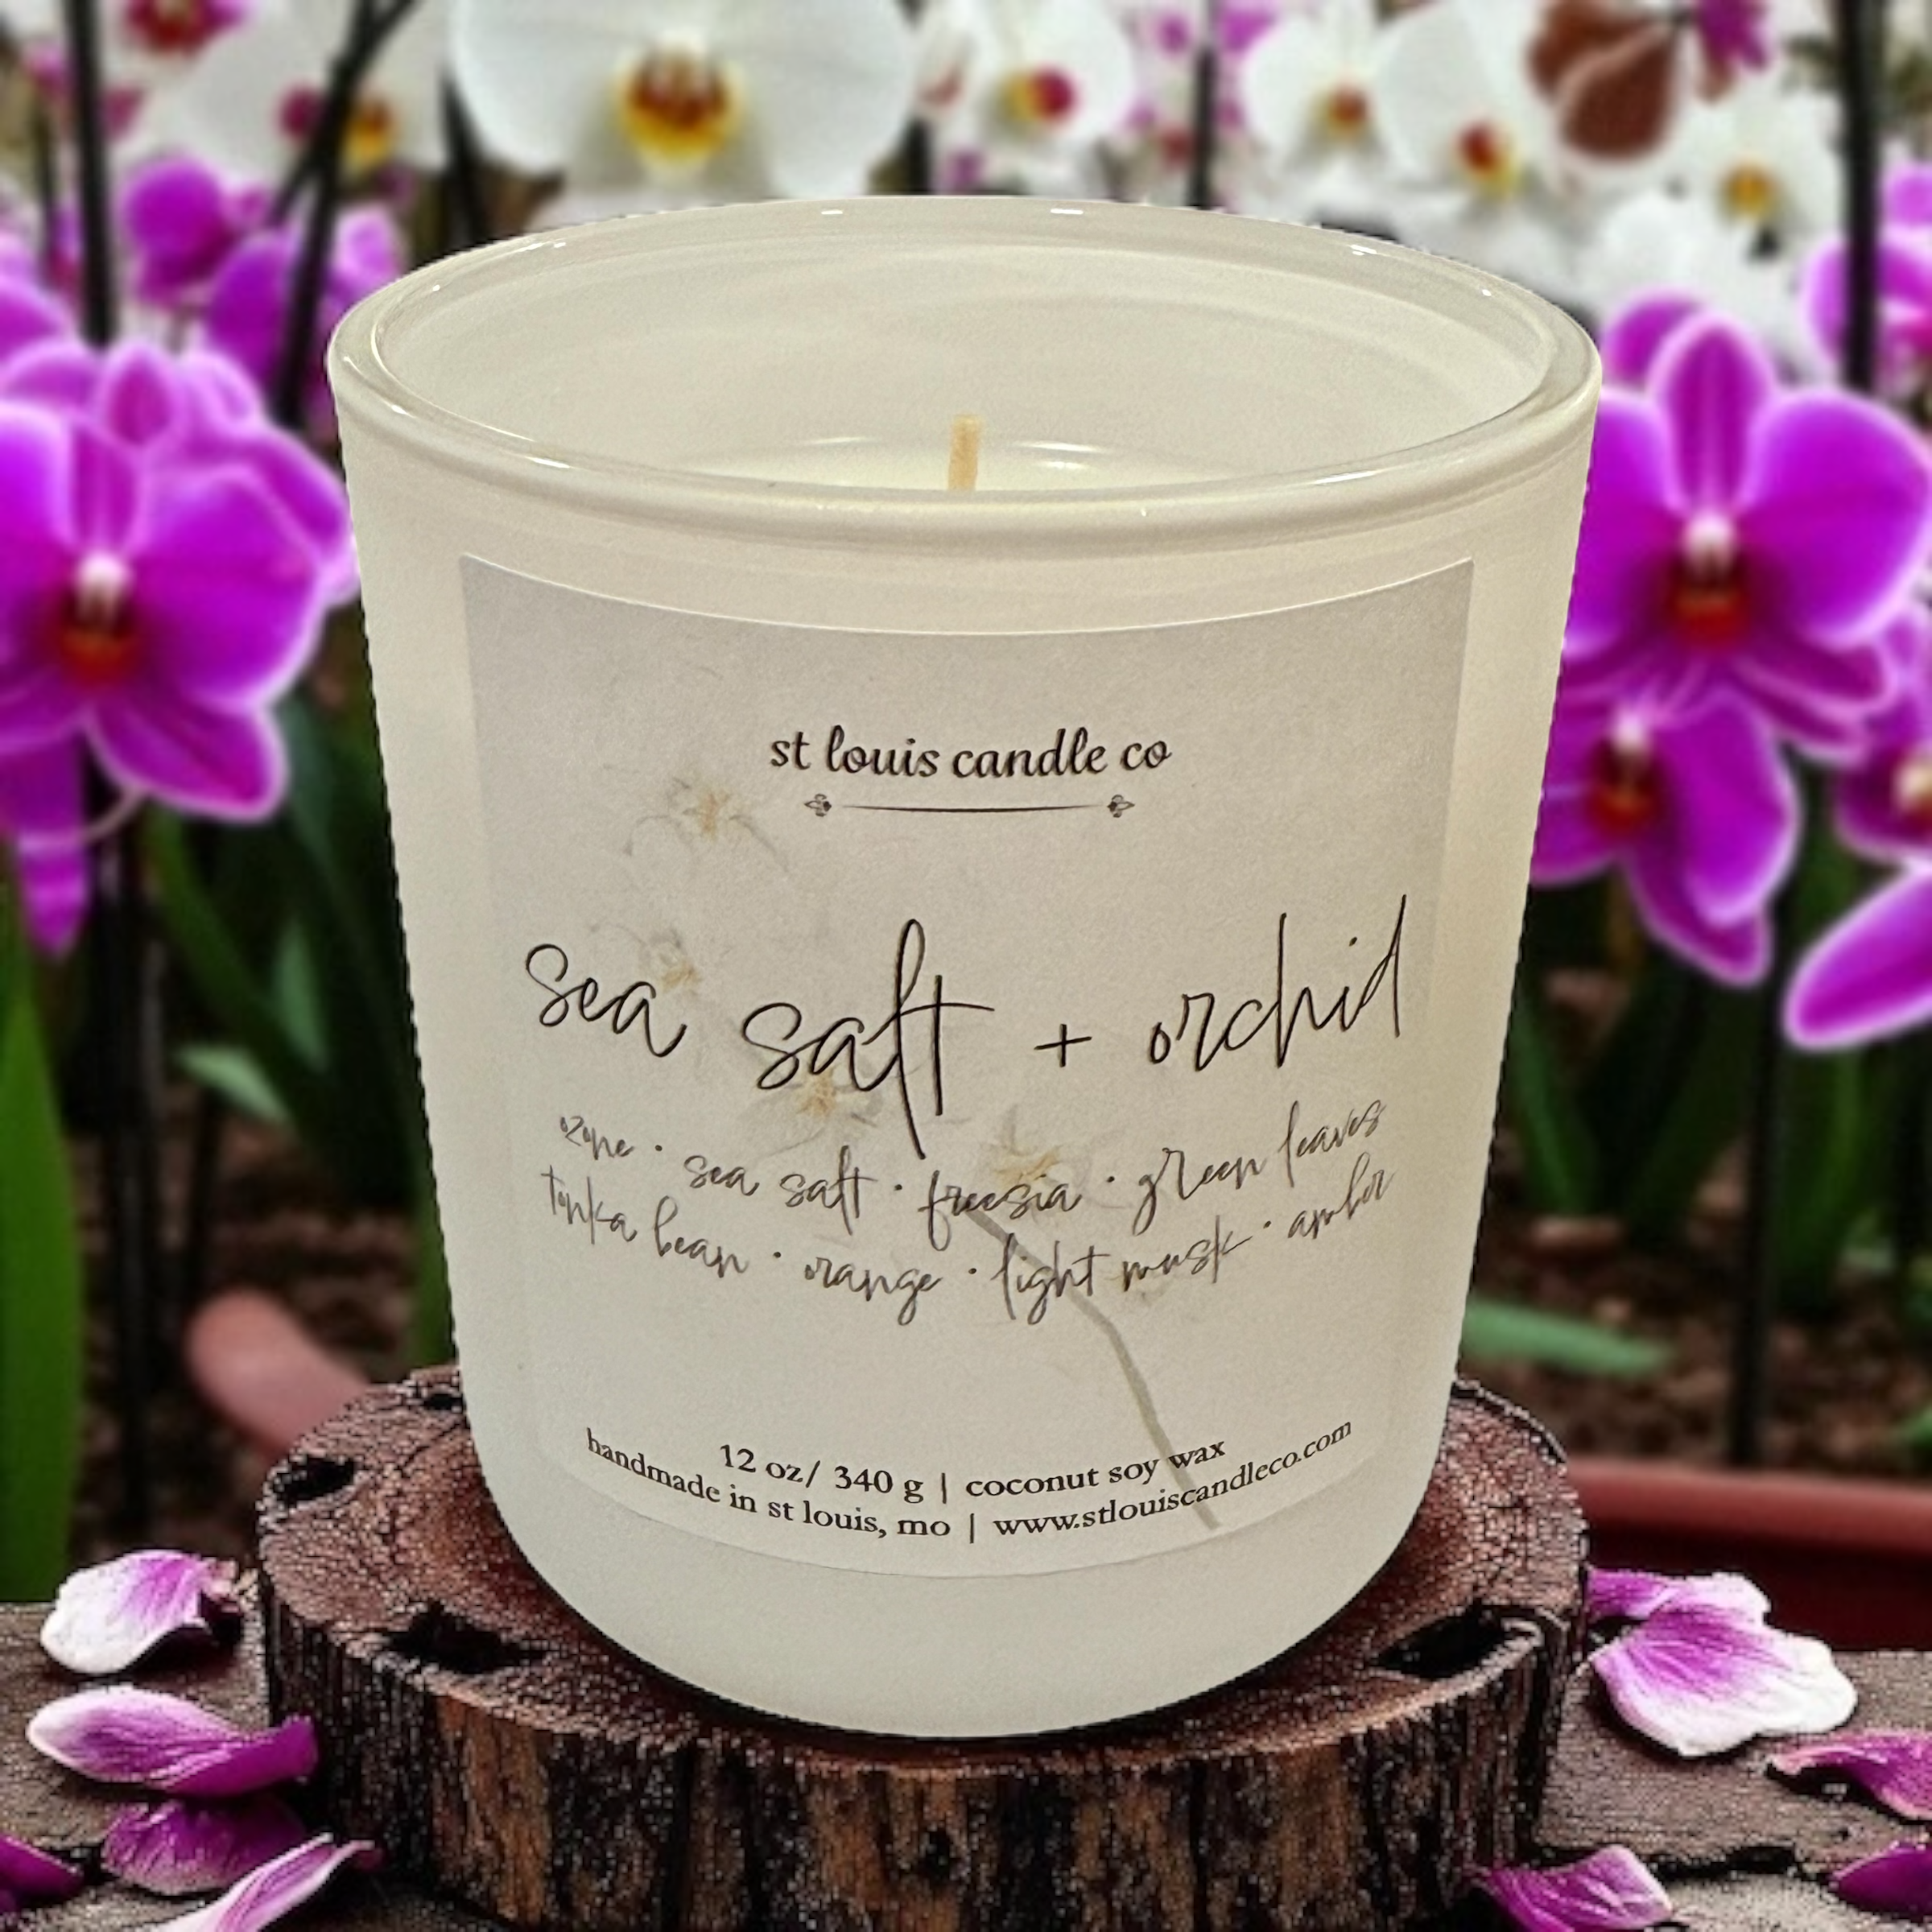 st louis candle co
sea salt + orchid
ozone · sea salt · freesia · green leaves
tonka bean · orange · light musk · amber
12 oz/ 340 g | coconut soy wax
handmade in st louis, mo | www.stlouiscandleco.com